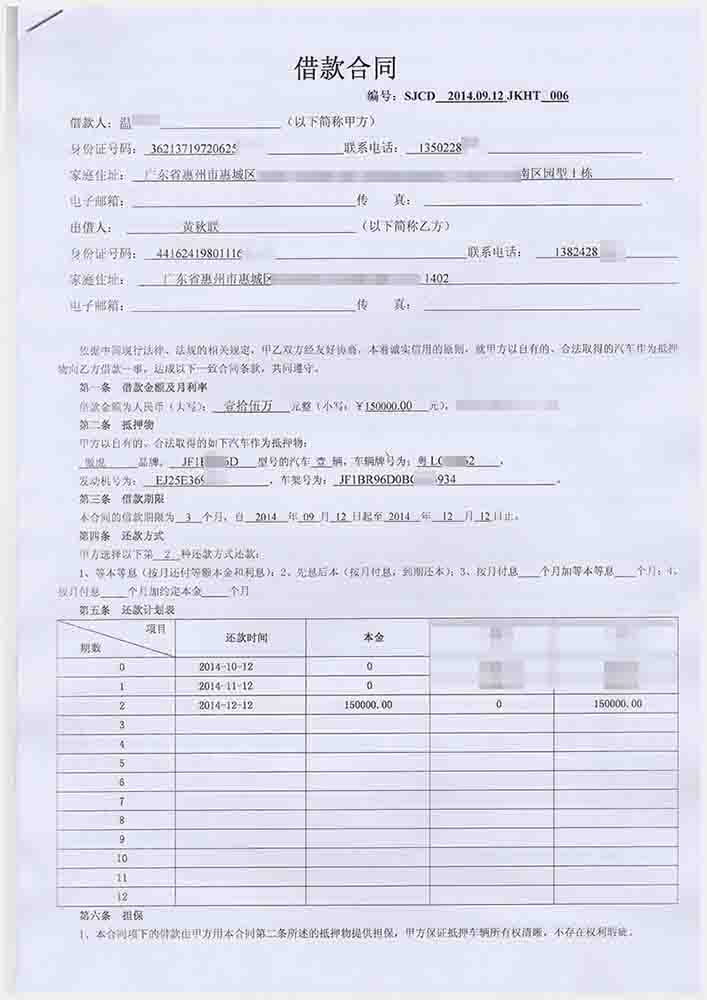 借款合同
编号：SJCD 2014.09.12 JKHT 006
借款人：温 （以下简称甲方）
身份证号码：36213719720625 联系电话：1350228
家庭住址：广东省惠州市惠城区 南区园型1栋
电子邮箱： 传 真：
出借人：黄秋联 （以下简称乙方）
身份证号码：4416241980111 联系电话：1382428
家庭住址：广东省惠州市惠城区 1402
电子邮箱： 传 真：
依据中国现行法律、法规的相关规定，甲乙双方经友好协商，本着诚实信用的原则，就甲方以自有的、合法取得的汽车作为抵押
物向乙方借款一事，达成以下一致合同条款，共同遵守。
第一条 借款金额及月利率
借款金额为人民币（大写）：壹拾伍万 元整（小写：￥150000.00 元），
第二条 抵押物
甲方以自有的、合法取得的如下汽车作为抵押物：
品牌，JF1 6D 型号的汽车 壹 辆，车辆牌号为：粤L 2，
发动机号为：EJ25E36 ，车架号为：JF1BR96D0B 934 。
第三条 借款期限
本合同的借款期限为 3 个月，自 2014 年 09 月 12 日起至 2014 年 12 月 12 日止。
第四条 还款方式
甲方选择以下第 2 种还款方式还款：
1、等本等息（按月还付等额本金和利息）；2、先息后本（按月付息，到期还本）；3、按月付息 个月加等本等息 个月；4、
按月付息 个月加约定本金 个月
第五条 还款计划表
项目
期数 还款时间 本金
0 2014-10-12 0
1 2014-11-12 0
2 2014-12-12 150000.00 0 150000.00
3
4
5
6
7
8
9
10
11
12
第六条 担保
1、本合同项下的借款由甲方用本合同第二条所述的抵押物提供担保，甲方保证抵押车辆所有权清晰，不存在权利瑕疵。